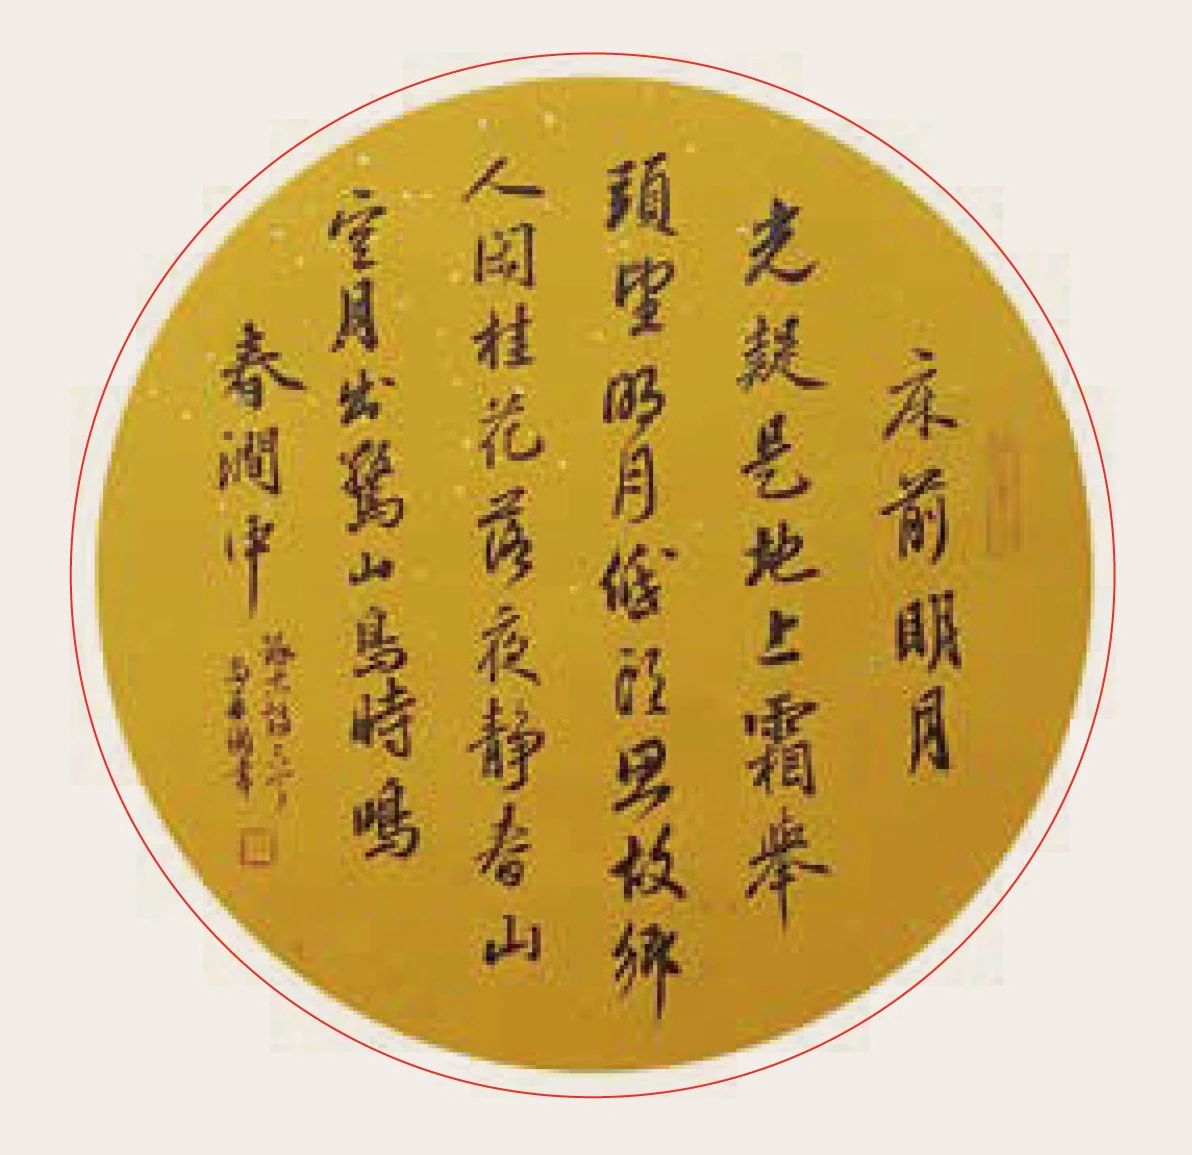 床前明月
光疑是地上霜舉
頭望明月低頭思故鄉
人閑桂花落夜静春山
空月出驚山鳥時鳴
春澗中